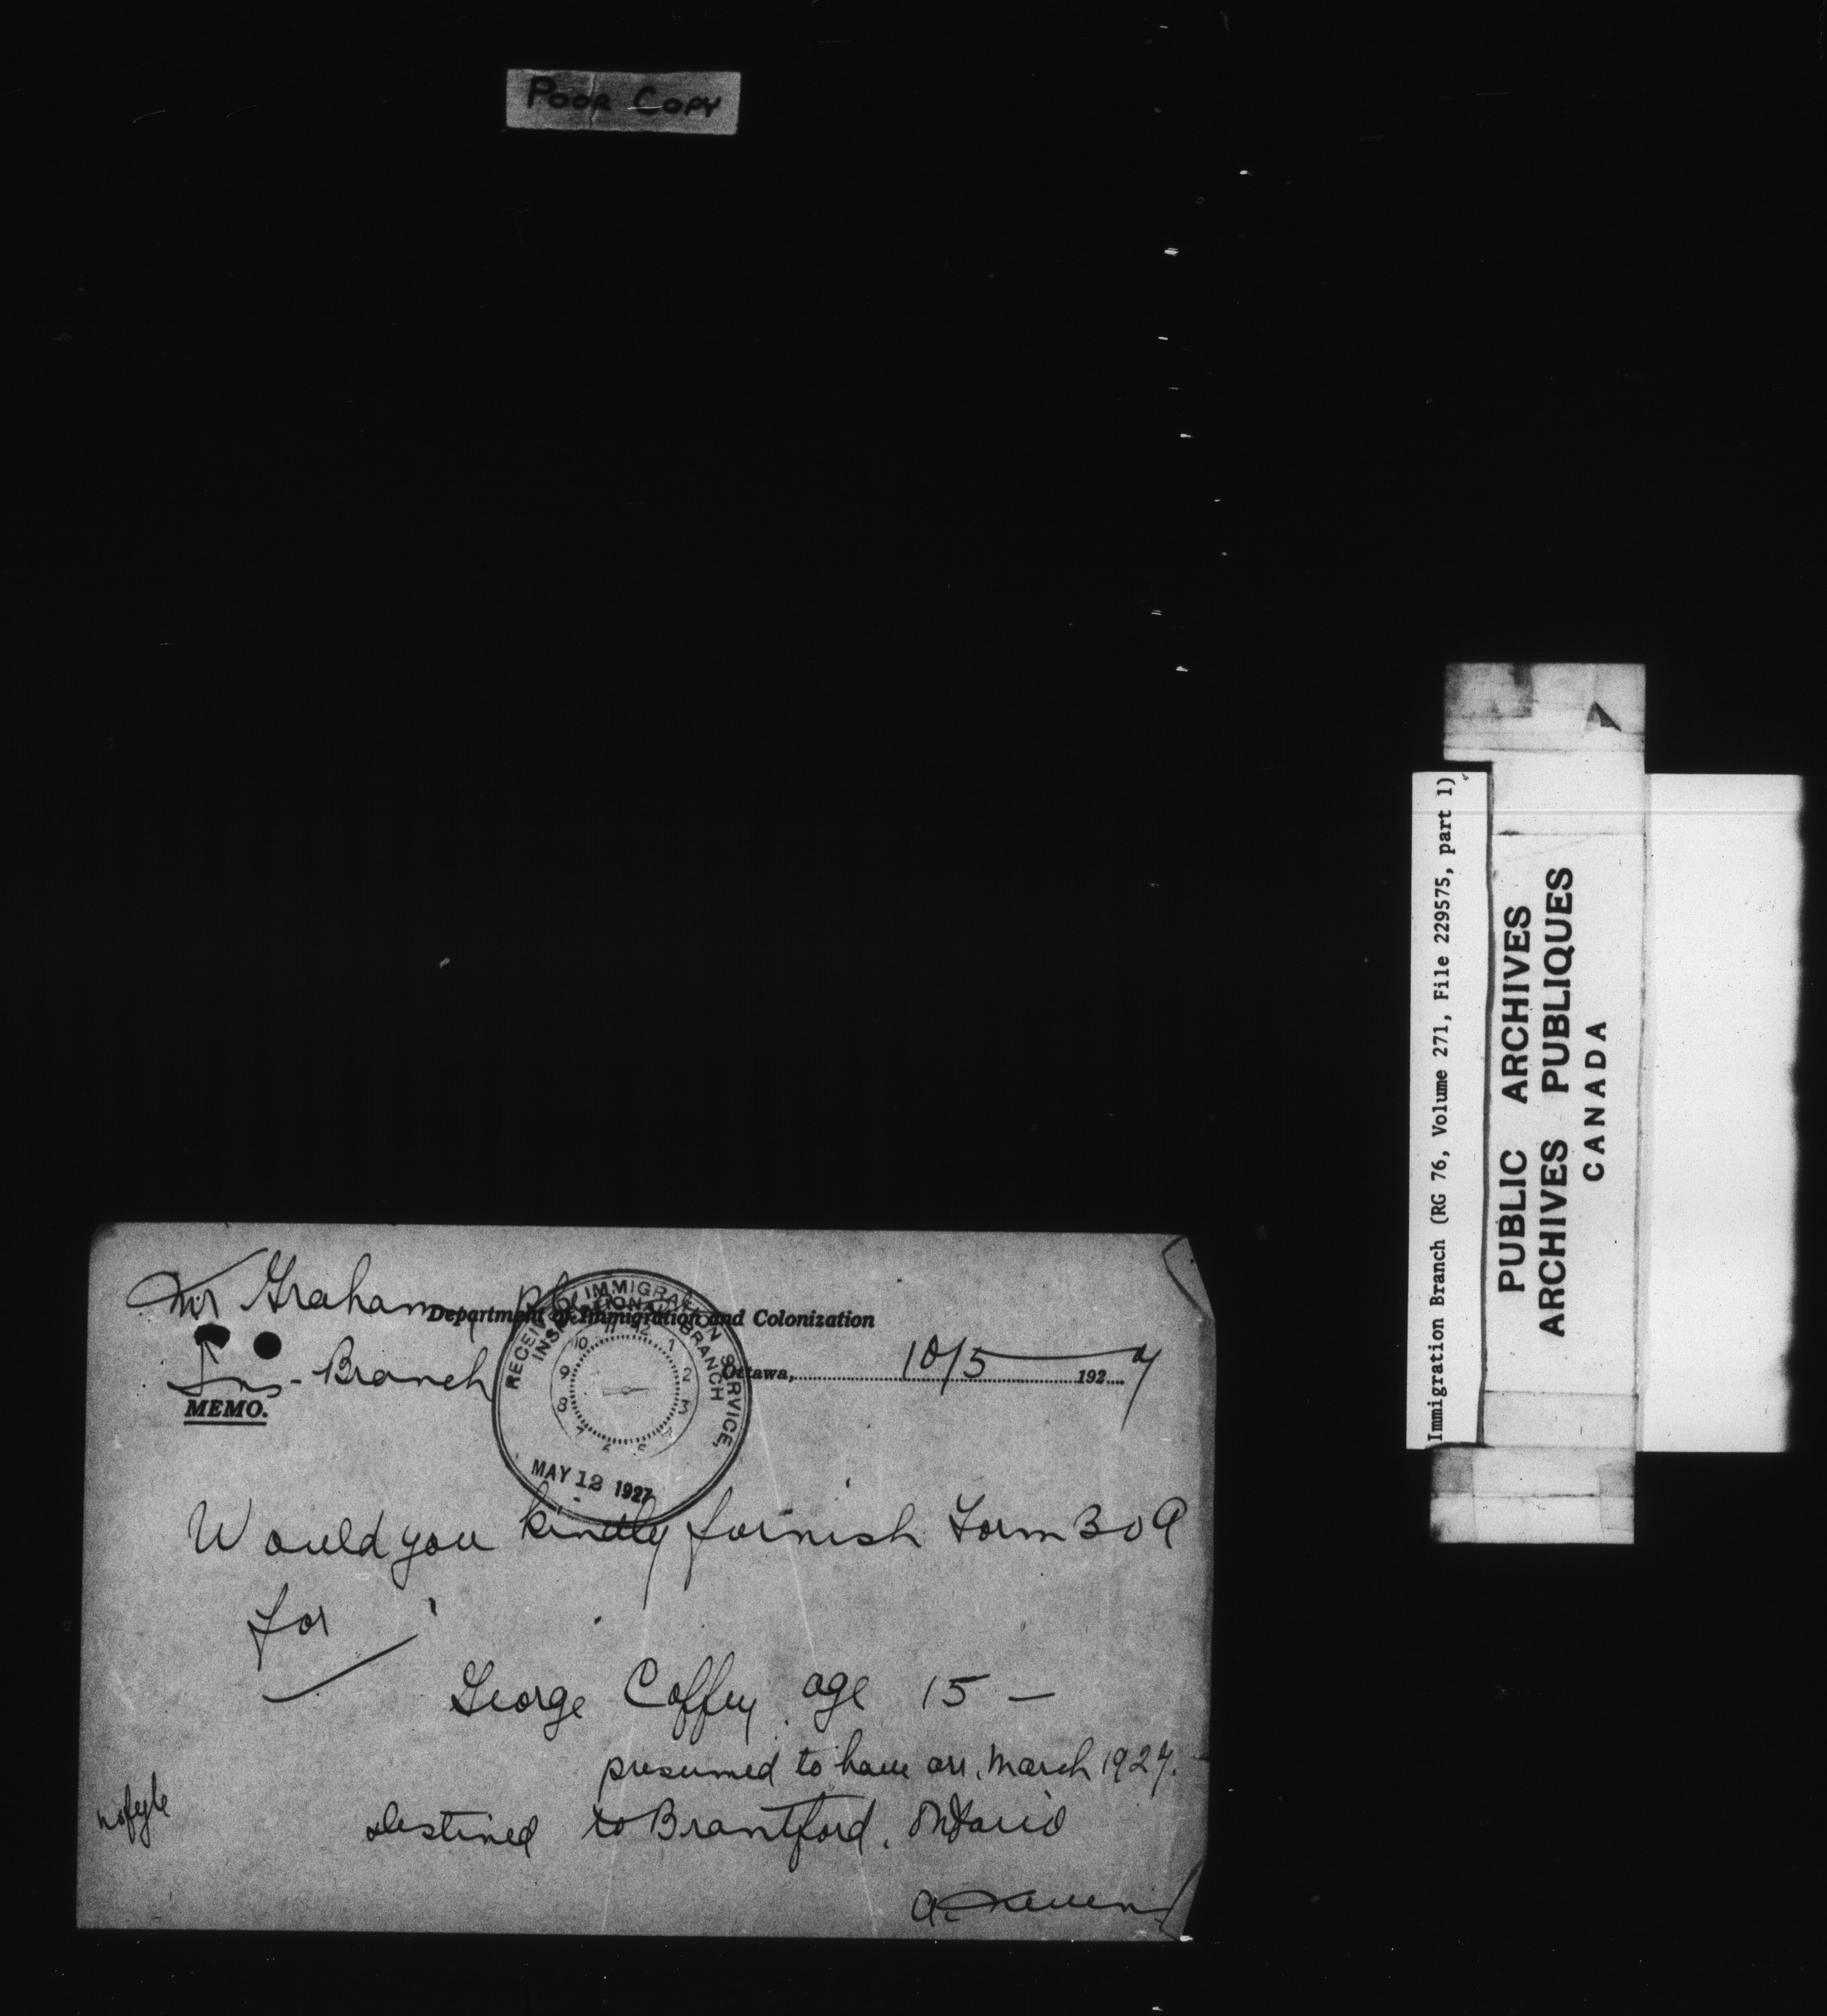 POOR COPY
Mr Graham
Department of Immigration and Colonization
Ins - Branch
Ottawa, 10/5 1927
MEMO.
RECEIVED IMMIGRATION SERVICE,
INSPECTIONAL BRANCH
11 12 1 2 3 5 6 7 8 9 10
MAY 12 1927
Would you kindly furnish Form 30A
for
George Coffey age 15 —
presumed to have arr. March 1927.
destined to Brantford, Ontario
no fyle
A.
Immigration Branch (RG 76, Volume 271, File 229575, part 1)
PUBLIC ARCHIVES
ARCHIVES PUBLIQUES
CANADA